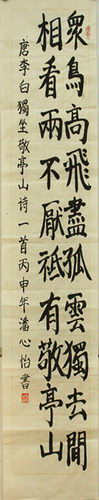 衆鳥高飛盡孤雲獨去閒
相看兩不厭祗有敬亭山
唐李白獨坐敬亭山诗一首丙申年潘心怡書